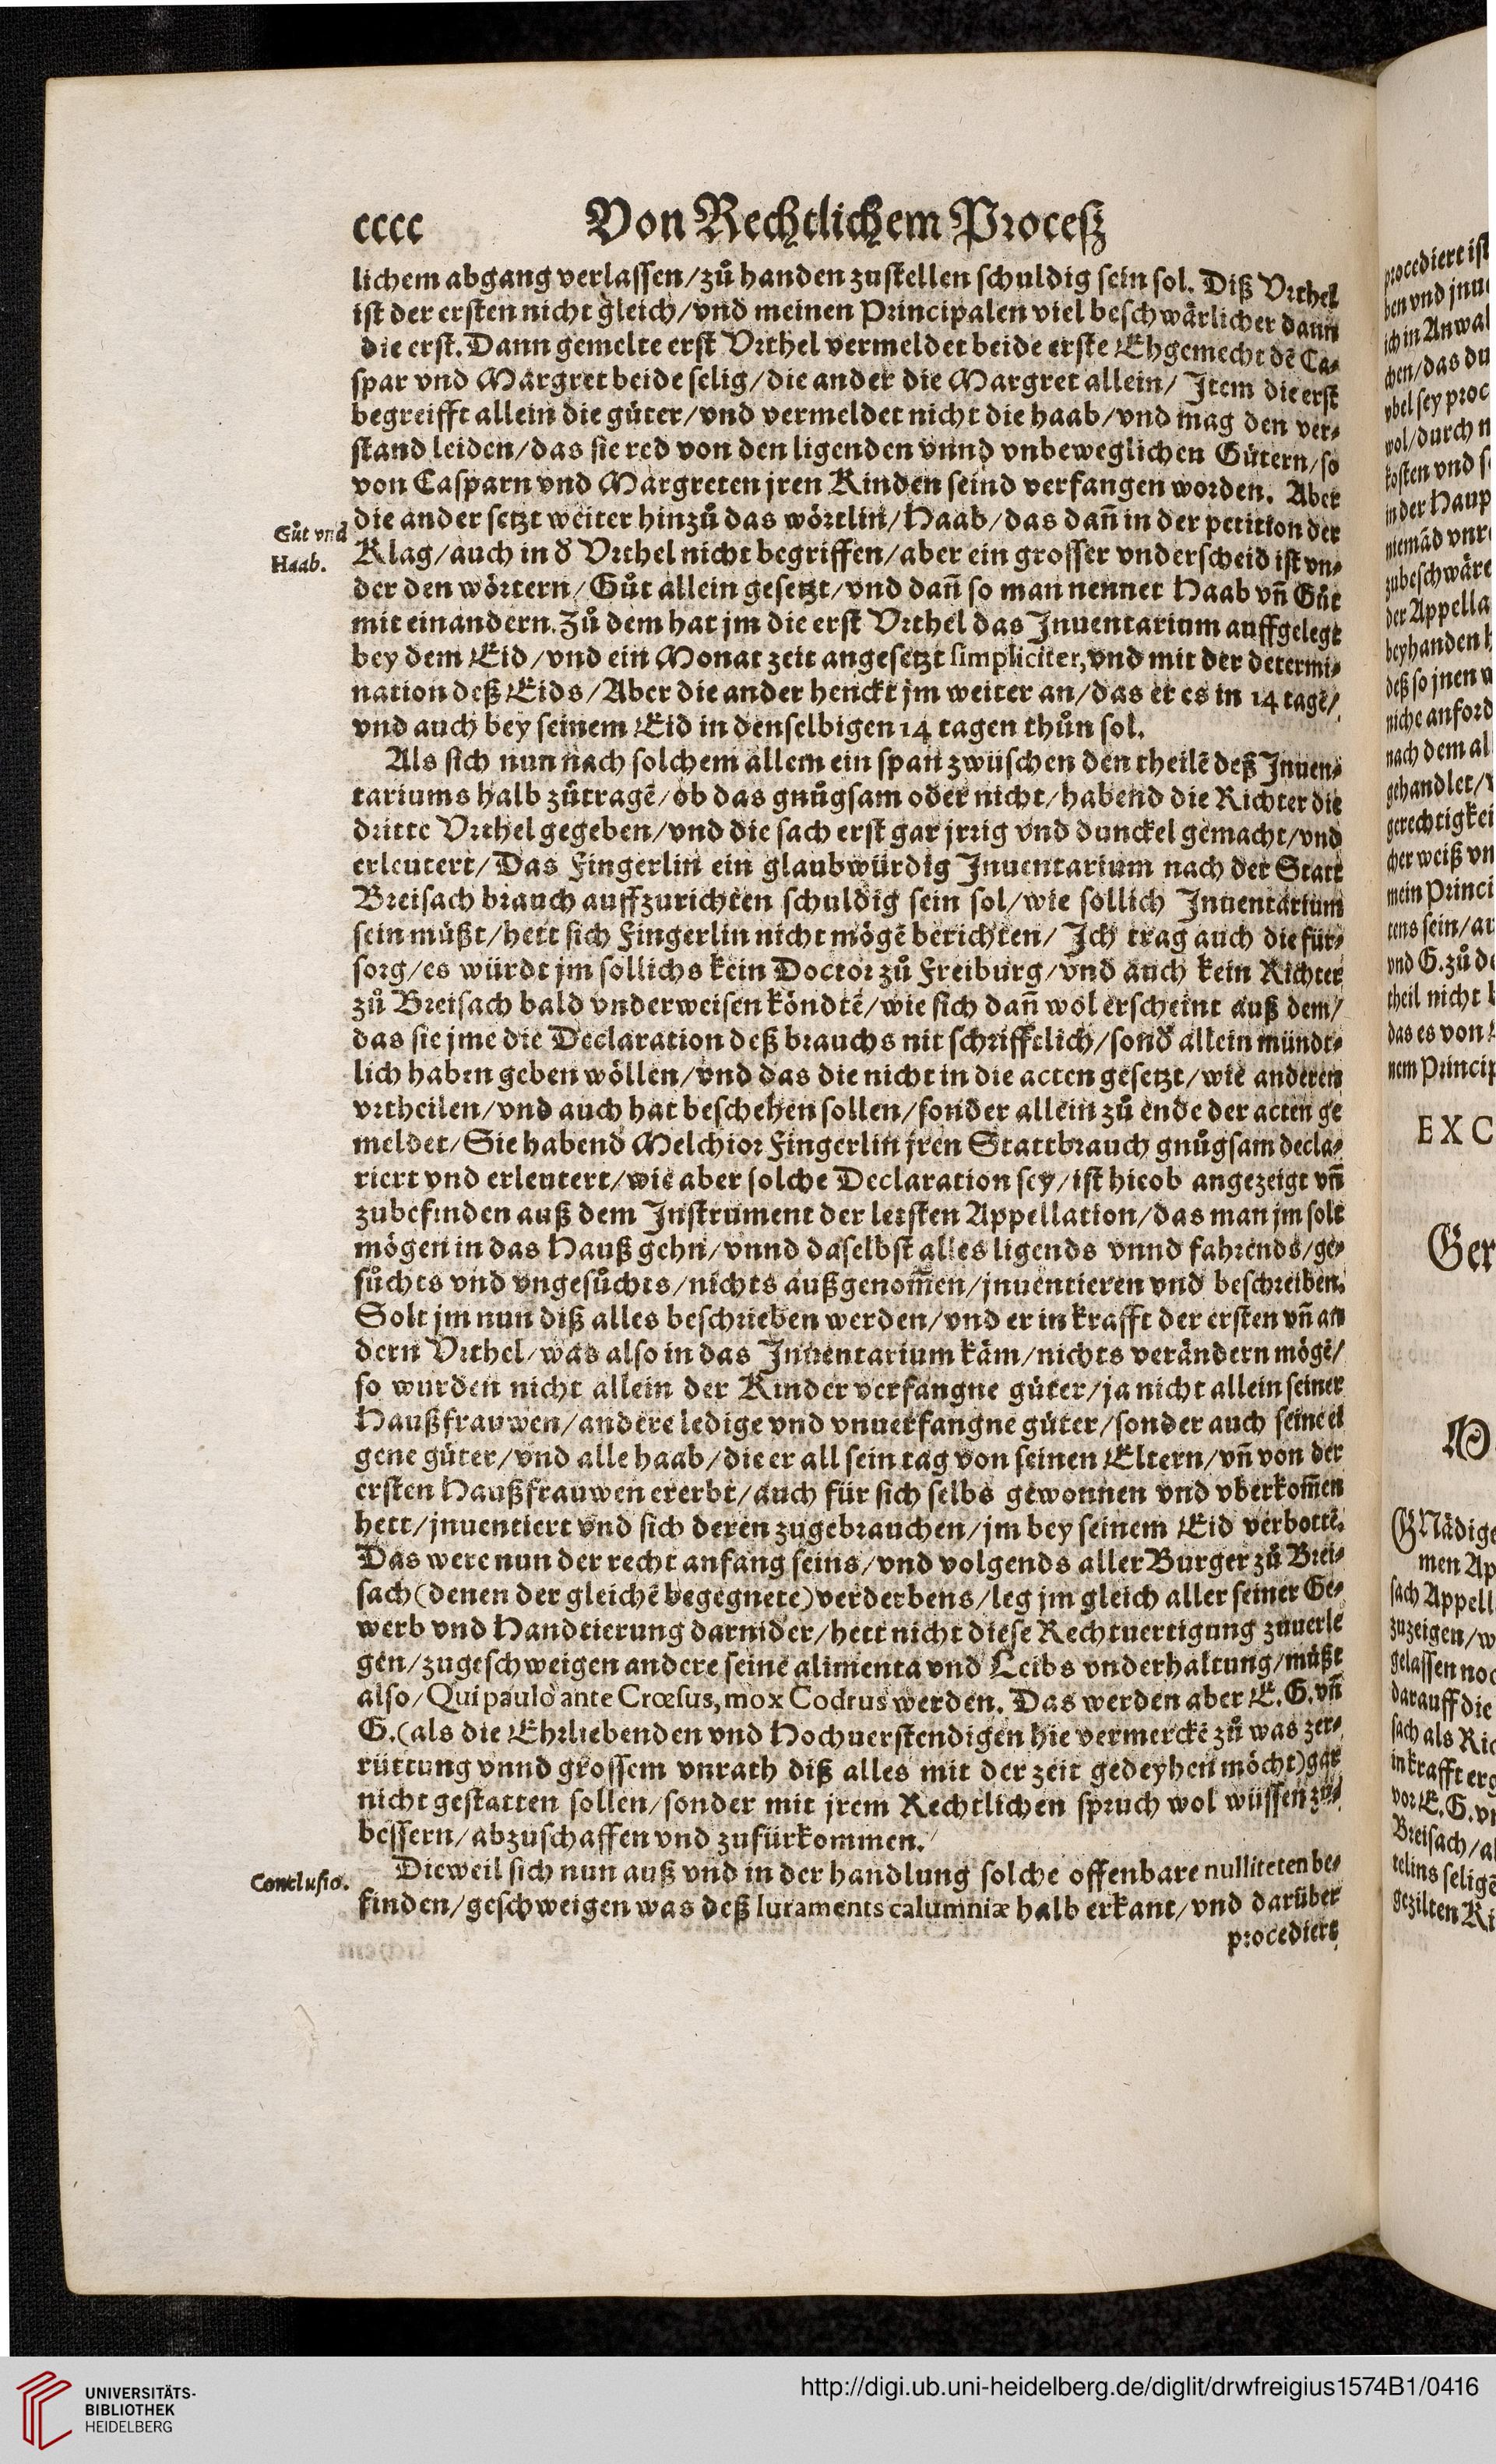 cccc Von Rechtlichem Proceß
lichem abgang verlassen/zů handen zustellen schuldig sein sol. Diß Vrthel
ist der ersten nicht gleich/vnd meinen Principalen viel beschwärlicher dann
die erst. Dann gemelte erst Vrthel vermeldet beide erste Ehgemecht dē Ca-
spar vnd Margret beide selig/die ander die Margret allein/ Item die erst
begreifft allein die güter/vnd vermeldet nicht die haab/vnd mag den ver-
stand leiden/das sie red von den ligenden vnnd vnbeweglichen Gütern/so
von Casparn vnd Margreten jren Kinden seind verfangen worden. Aber
die ander setzt weiter hinzů das wörtlin/Haab/das dañ in der petition der
Gůt vnd
Haab.
Klag/auch in d̄ Vrthel nicht begriffen/aber ein grosser vnderscheid ist vn-
der den wörtern/Gůt allein gesetzt/vnd dañ so man nennet Haab vñ Gůt
mit einandern. Zů dem hat jm die erst Vrthel das Inuentarium auffgelegt
bey dem Eid/vnd ein Monat zeit angesetzt simpliciter, vnd mit der determi-
nation deß Eids/Aber die ander henckt jm weiter an/das er es in 14 tagē/
vnd auch bey seinem Eid in denselbigen 14 tagen thůn sol.
Als sich nun nach solchem allem ein span zwüschen den theilē deß Inuen-
tariums halb zůtragē/ob das gnůgsam oder nicht/habend die Richter die
dritte Vrthel gegeben/vnd die sach erst gar jrrig vnd dunckel gemacht/vnd
erleutert/Das Fingerlin ein glaubwürdig Inuentarium nach der Statt
Breisach brauch auffzurichten schuldig sein sol/wie sollich Inuentarium
sein müßt/hett sich Fingerlin nicht mögē berichten/ Ich trag auch die für-
sorg/es würdt jm sollichs kein Doctor zů Freiburg/vnd auch kein Richter
zů Breisach bald vnderweisen köndtē/wie sich dañ wol erscheint auß dem/
das sie jme die Declaration deß brauchs nit schrifftlich/sond̄ allein mündt-
lich haben geben wöllen/vnd das die nicht in die acten gesetzt/wie anderen
vrtheilen/vnd auch hat beschehen sollen/sonder allein zů ende der acten ge
meldet/Sie habend Melchior Fingerlin jren Stattbrauch gnůgsam decla-
riert vnd erleutert/wie aber solche Declaration sey/ist hieob angezeigt vñ
zubefinden auß dem Instrument der letsten Appellation/das man jm solt
mögen in das Hauß gehn/vnnd daselbst alles ligends vnnd fahrends/ge-
sůchts vnd vngesůchts/nichts außgenom̄en/jnuentieren vnd beschreiben.
Solt jm nun diß alles beschrieben werden/vnd er in krafft der ersten vñ an
dern Vrthel/was also in das Inuentarium käm/nichts verändern mögē/
so wurden nicht allein der Kinder verfangne güter/ja nicht allein seiner
Haußfrauwen/andere ledige vnd vnuerfangne güter/sonder auch seine ei
gene güter/vnd alle haab/die er all sein tag von seinen Eltern/vñ von der
ersten Haußfrauwen ererbt/auch für sich selbs gewonnen vnd vberkom̄en
hett/jnuentiert vnd sich deren zugebrauchen/jm bey seinem Eid verbottē.
Das were nun der recht anfang seins/vnd volgends aller Burger zů Brei-
sach (denen der gleichē begegnete) verderbens/leg jm gleich aller seiner Ge-
werb vnd Handtierung darnider/hett nicht diese Rechtuertigung zuuerle
gen/zugeschweigen andere seine alimenta vnd Leibs vnderhaltung/müßt
also/Qui paulò ante Crœsus, mox Codrus werden. Das werden aber E. G. vñ
G. (als die Ehrliebenden vnd Hochuerstendigen hie vermerckē zů was zer-
rüttung vnnd grossem vnrath diß alles mit der zeit gedeyhen möcht) gar
nicht gestatten sollen/sonder mit jrem Rechtlichen spruch wol wüssen zu-
bessern/abzuschaffen vnd zufürkommen.
Conclusio.
Dieweil sich nun auß vnd in der handlung solche offenbare nulliteten be-
finden/geschweigen was deß Iuraments calumniæ halb erkant/vnd darüber
procediert
procediert ist
ben vnd jnu
ich in Anwal
chen/das du
vbel sey proc
wol/durch n
kosten vnd s
in der Haup
niemād vnr
zubeschwäre
der Appella
beyhanden h
deß so jnen
niche anford
nach dem al
gehandlet/
gerechtigkei
cher weiß vn
mein Princi
tens sein/au
vnd G. zů de
theil nicht
das es von
nem Princip
EXC
Ger
GNädige
men Ap
sach Appell
zuzeigen/w
gelassen noc
darauff die
sach als Ric
in krafft erg
vor E. G. v
Breisach/al
telins seligē
gezilten Ki
UNIVERSITÄTS-
BIBLIOTHEK
HEIDELBERG
http://digi.ub.uni-heidelberg.de/diglit/drwfreigius1574B1/0416